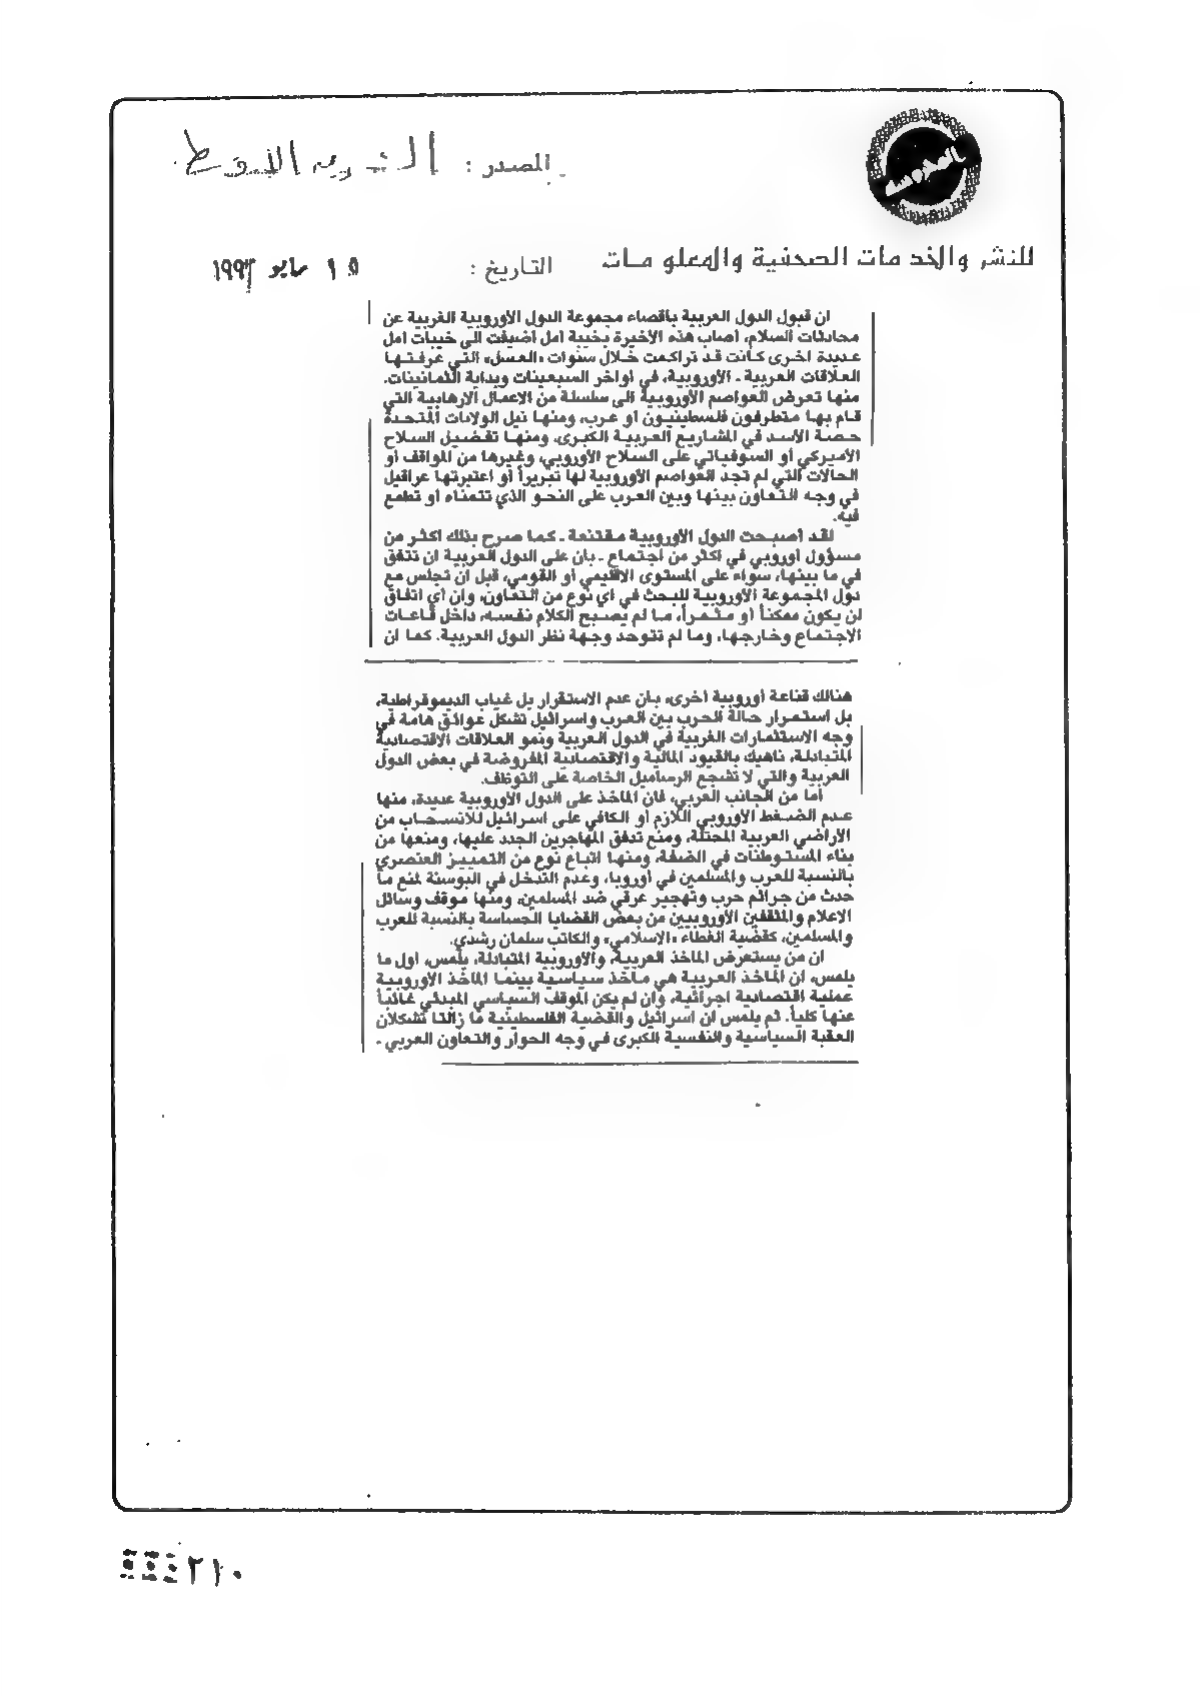 المحروسة
المصدر : الشرق الأوسط
للنشر والخدمات الصحفية والمعلومات
التاريخ : ١٥ مايو ١٩٩٣
ان قبول الدول العربية بأقصاء مجموعة الدول الأوروبية الغربية عن
محادثات السلام، أصاب هذه الأخيرة بخيبة أمل أضيفت الى خيبات أمل
عديدة اخرى كانت قد تراكمت خلال سنوات «العسل» التي عرفتها
العلاقات العربية ـ الأوروبية، في أواخر السبعينات وبداية الثمانينات.
منها تعرض العواصم الأوروبية الى سلسلة من الاعمال الارهابية التي
قام بها متطرفون فلسطينيون أو عرب، ومنها نيل الولايات المتحدة
حصة الأسد في المشاريع العربية الكبرى، ومنها تفضيل السلاح
الأميركي أو السوفياتي على السلاح الأوروبي، وغيرها من المواقف أو
الحالات التي لم تجد العواصم الأوروبية لها تبريراً أو اعتبرتها عراقيل
في وجه التعاون بينها وبين العرب على النحو الذي تتمناه أو تطمع
فيه.
لقد أصبحت الدول الأوروبية مقتنعة ـ كما صرح بذلك اكثر من
مسؤول أوروبي في اكثر من اجتماع ـ بان على الدول العربية ان تتفق
في ما بينها، سواء على المستوى الاقليمي أو القومي، قبل ان تجلس مع
دول المجموعة الأوروبية للبحث في أي نوع من التعاون، وان أي اتفاق
لن يكون ممكناً أو مثمراً، ما لم يصبح الكلام نفسه، داخل قاعات
الاجتماع وخارجها، وما لم تتوحد وجهة نظر الدول العربية. كما ان
هنالك قناعة أوروبية أخرى، بان عدم الاستقرار بل غياب الديموقراطية،
بل استمرار حالة الحرب بين العرب واسرائيل تشكل عوائق هامة في
وجه الاستثمارات الغربية في الدول العربية ونمو العلاقات الاقتصادية
المتبادلة، ناهيك بالقيود المالية والاقتصادية المفروضة في بعض الدول
العربية والتي لا تشجع الرساميل الخاصة على التوظف.
أما من الجانب العربي، فان المآخذ على الدول الأوروبية عديدة، منها
عدم الضغط الأوروبي اللازم أو الكافي على اسرائيل للانسحاب من
الأراضي العربية المحتلة، ومنع تدفق المهاجرين الجدد عليها، ومنعها من
بناء المستوطنات في الضفة، ومنها اتباع نوع من التمييز العنصري
بالنسبة للعرب والمسلمين في أوروبا، وعدم التدخل في البوسنة لمنع ما
حدث من جرائم حرب وتهجير عرقي ضد المسلمين، ومنها موقف وسائل
الاعلام والمثقفين الأوروبيين من بعض القضايا الحساسة بالنسبة للعرب
والمسلمين، كقضية الغطاء «الاسلامي» والكاتب سلمان رشدي.
ان من يستعرض المآخذ العربية، والأوروبية المتبادلة، يلمس، أول ما
يلمس، ان المآخذ العربية هي مآخذ سياسية بينما المآخذ الأوروبية
عملية اقتصادية اجرائية، وان لم يكن الموقف السياسي المبدئي غائباً
عنها كلياً. ثم يلمس ان اسرائيل والقضية الفلسطينية ما زالتا تشكلان
العقبة السياسية والنفسية الكبرى في وجه الحوار والتعاون العربي ـ